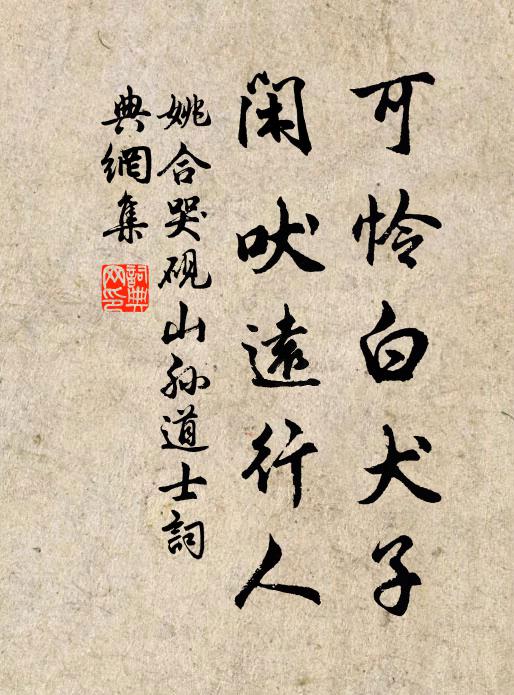 可怜白犬子
閑吠遠行人
姚合哭砚山孙道士詞
典網集
詞典
网印